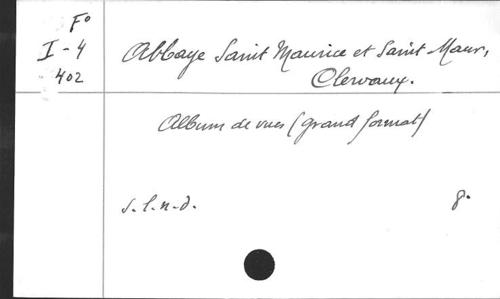 F°
I-4
402
Abbaye Saint Maurice et Saint Maur,
Clervaux.
Album de vues (grand format)
s.l.n.d. 8°